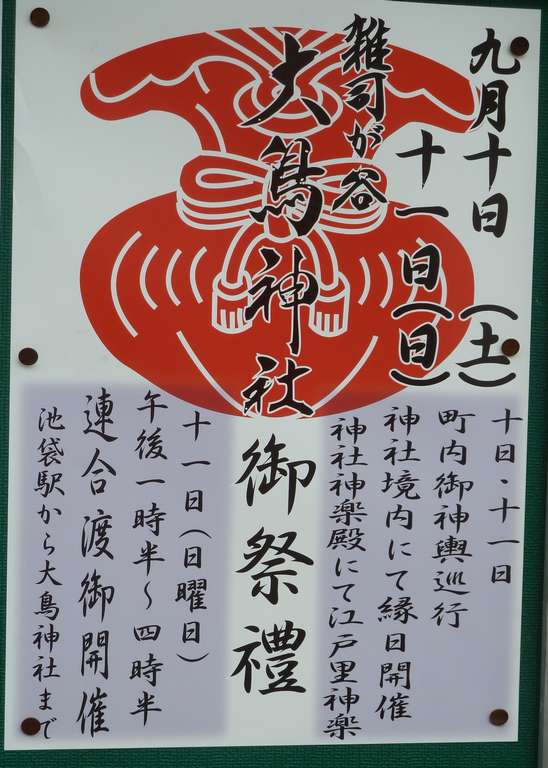 九月十日(土)
十一日(日)
雑司が谷
大鳥神社御祭禮
十日・十一日
町内御神輿巡行
神社境内にて縁日開催
神社神楽殿にて江戸里神楽
十一日(日曜日)
午後一時半～四時半
連合渡御開催
池袋駅から大鳥神社まで